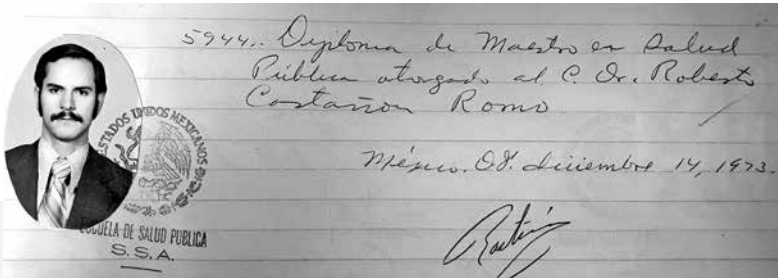 5944.. Diploma de Maestro en Salud
Pública otorgado al C. Dr. Roberto
Castañon Romo
México. D.F. diciembre 14, 1973.
ESTADOS UNIDOS MEXICANOS
ESCUELA DE SALUD PUBLICA
S. S. A.